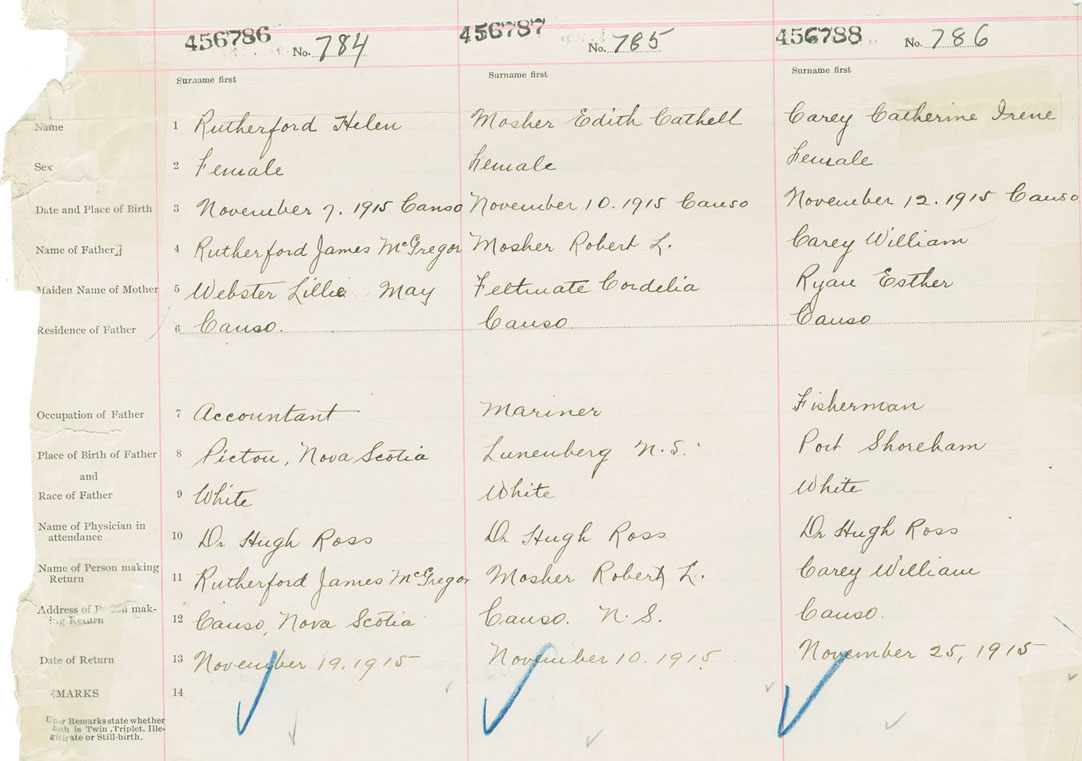 456786 No. 784 456787 No. 785 456788 No. 786
Surname first Surname first Surname first
Name 1 Rutherford Helen Mosher Edith Cathell Carey Catherine Irene
Sex 2 Female Female Female
Date and Place of Birth 3 November 7. 1915 Canso November 10. 1915 Canso November 12. 1915 Canso
Name of Father 4 Rutherford James McGregor Mosher Robert L. Carey William
Maiden Name of Mother 5 Webster Lillie May Feltmate Cordelia Ryan Esther
Residence of Father 6 Canso. Canso Canso
Occupation of Father 7 Accountant Mariner Fisherman
Place of Birth of Father 8 Pictou, Nova Scotia Lunenberg N.S. Port Shoreham
and
Race of Father 9 White White White
Name of Physician in
attendance 10 Dr Hugh Ross Dr Hugh Ross Dr Hugh Ross
Name of Person making
Return 11 Rutherford James McGregor Mosher Robert L. Carey William
Address of Person mak-
ing Return 12 Canso, Nova Scotia Canso. N.S. Canso.
Date of Return 13 November 19. 1915 November 10. 1915 November 25, 1915
EMARKS 14
Under Remarks state whether
Birth is Twin, Triplet, Ille-
gitimate or Still-birth.